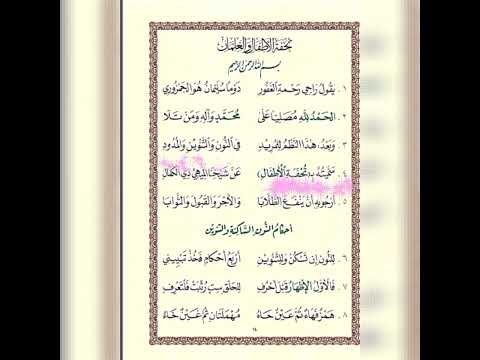 تحفة الأطفال والغلمان
بسم الله الرحمن الرحيم
١ . يَقُولُ رَاجِي رَحْمَةِ الْغَفُورِ دَوْمًا سُلَيْمَانُ هُوَ الْجَمْزُورِي
٢ . الْحَمْدُ لِلَّهِ مُصَلِّيًا عَلَى مُحَمَّدٍ وَآلِهِ وَمَنْ تَلَا
٣ . وَبَعْدُ: هَذَا النَّظْمُ لِلْمُرِيدِ فِي النُّونِ وَالتَّنْوِينِ وَالْمُدُودِ
٤ . سَمَّيْتُهُ بِـ(تُحْفَةِ الْأَطْفَالِ) عَنْ شَيْخِنَا الْمِيهِيِّ ذِي الْكَمَالِ
٥ . أَرْجُو بِهِ أَنْ يَنْفَعَ الطُّلَّابَا وَالْأَجْرَ وَالْقَبُولَ وَالثَّوَابَا
أحكام النون الساكنة والتنوين
٦ . لِلنُّونِ إِنْ تَسْكُنْ وَلِلتَّنْوِينِ أَرْبَعُ أَحْكَامٍ فَخُذْ تَبْيِينِي
٧ . فَالْأَوَّلُ الْإِظْهَارُ قَبْلَ أَحْرُفِ لِلْحَلْقِ سِتٍّ رُتِّبَتْ فَلْتَعْرِفِ
٨ . هَمْزٌ فَهَاءٌ ثُمَّ عَيْنٌ حَاءُ مُهْمَلَتَانِ ثُمَّ غَيْنٌ خَاءُ